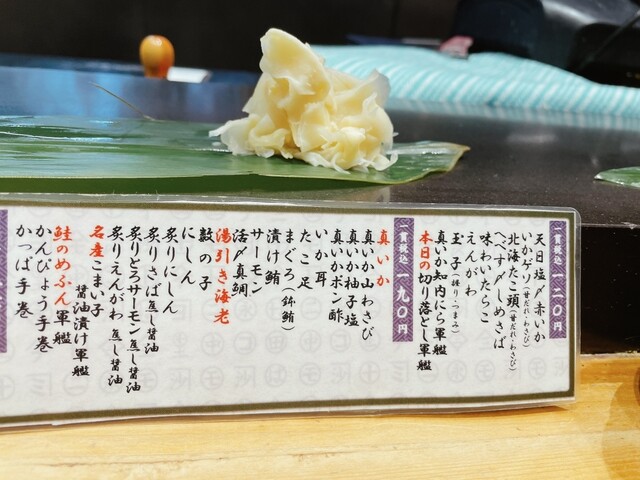 一貫税込 一二〇円
天日塩〆赤いか
いかゲソ(甘だれ・わさび)
北海たこ頭(甘だれ・わさび)
へべす〆しめさば
えんがわ
味わいたらこ
玉子(握り・つまみ)
真いか知内にら軍艦
本日の切り落とし軍艦
一貫税込 一九〇円
真いか
真いか山わさび
真いか柚子塩
真いかポン酢
いか耳
たこ足
まぐろ(鉢鮪)
漬け鮪
サーモン
活〆真鯛
湯引き海老
数の子
にしん
炙りにしん
炙りさば 焦し醤油
炙りとろサーモン 焦し醤油
炙りえんがわ 焦し醤油
名産こまい子
醤油漬け軍艦
鮭のめふん軍艦
かんぴょう手巻
かっぱ手巻